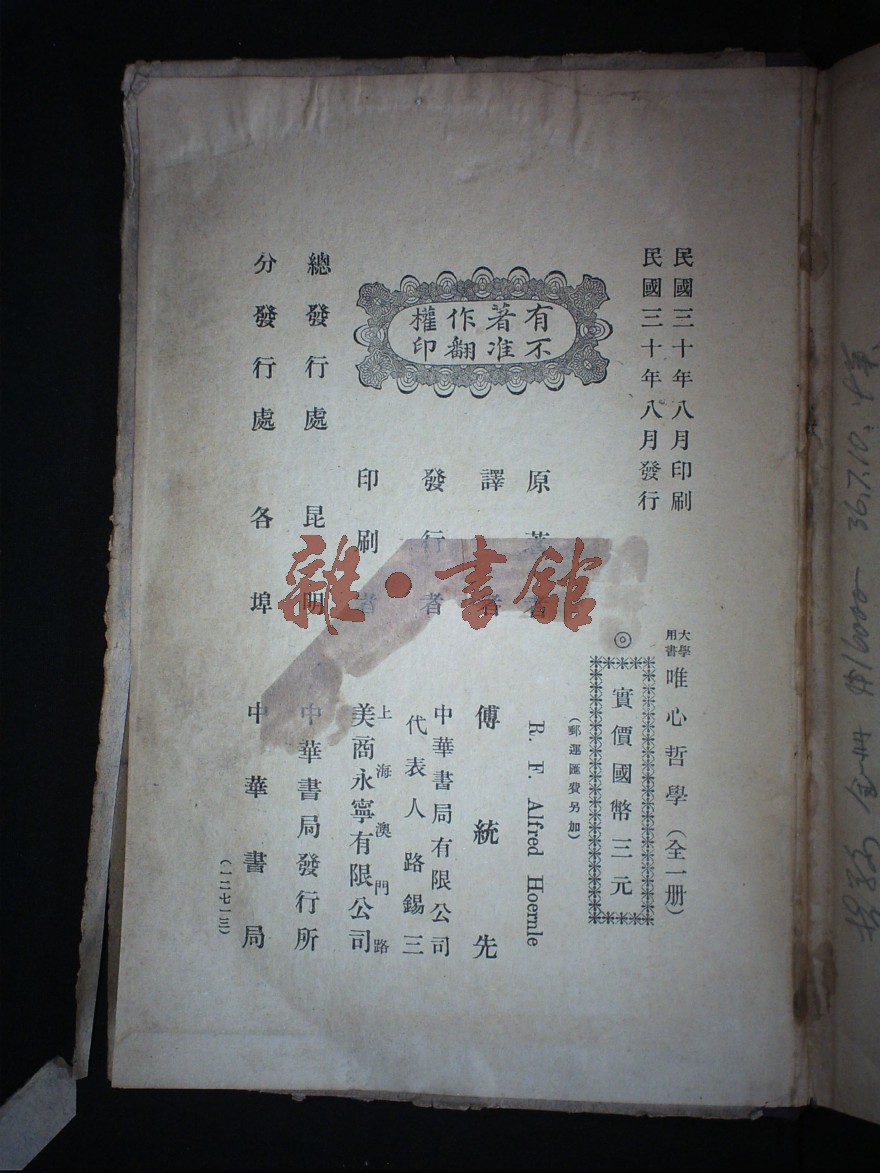 民國三十年八月印刷
民國三十年八月發行
大學用書 唯心哲學（全一册）
◎實價國幣三元
（郵運匯費另加）
有著作權
不准翻印
原著者 R. F. Alfred Hoernle
譯者 傅統先
發行者 中華書局有限公司
代表人路錫三
印刷者 上海澳門路
美商永寧有限公司
總發行處 昆明 中華書局發行所
分發行處 各埠 中華書局
（一二七一三）
雜·書館